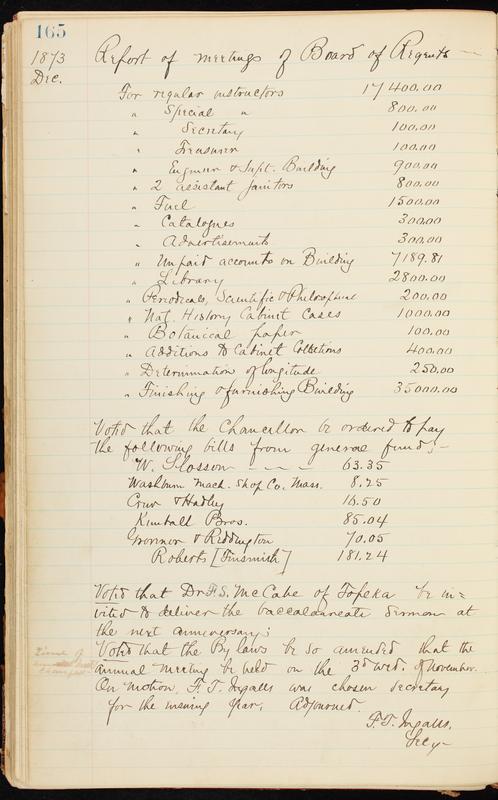 165
1873 Report of meetings of Board of Regents
Dec.
For regular instructors 17400.00
" Special " 800.00
" Secretary 100.00
" Treasurer 100.00
" Engineer & Supt. Building 900.00
" 2 assistant janitors 800.00
" Fuel 1500.00
" Catalogues 300.00
" Advertisements 300.00
" Unpaid accounts on Building 7189.81
" Library 2800.00
" Periodicals, Scientific & Philosophical 200.00
" Nat. History Cabinet Cases 1000.00
" Botanical paper 100.00
" Additions to Cabinet Collections 400.00
" Determination of longitude 250.00
" Finishing & furnishing Building 35000.00
Voted that the Chancellor be ordered to pay
the following bills from general fund;-
W. Slosson - - - - 63.35
Washburn Mach. Shop Co. Mass. 8.25
Crew & Hadley 16.50
Kimball Bros. 85.04
& Riddington 70.05
Roberts [Tinsmith] 181.24
Voted that Dr F.S. McCabe of Topeka be in=
vited to deliver the baccalaureate sermon at
the next anniversary;
Time of
Voted that the By laws be so amended that the
annual meeting be held on the 3d Wed. of November.
On motion, F. T. Ingalls was chosen secretary
for the ensuing year. Adjourned.
F.T. Ingalls,
Secy-